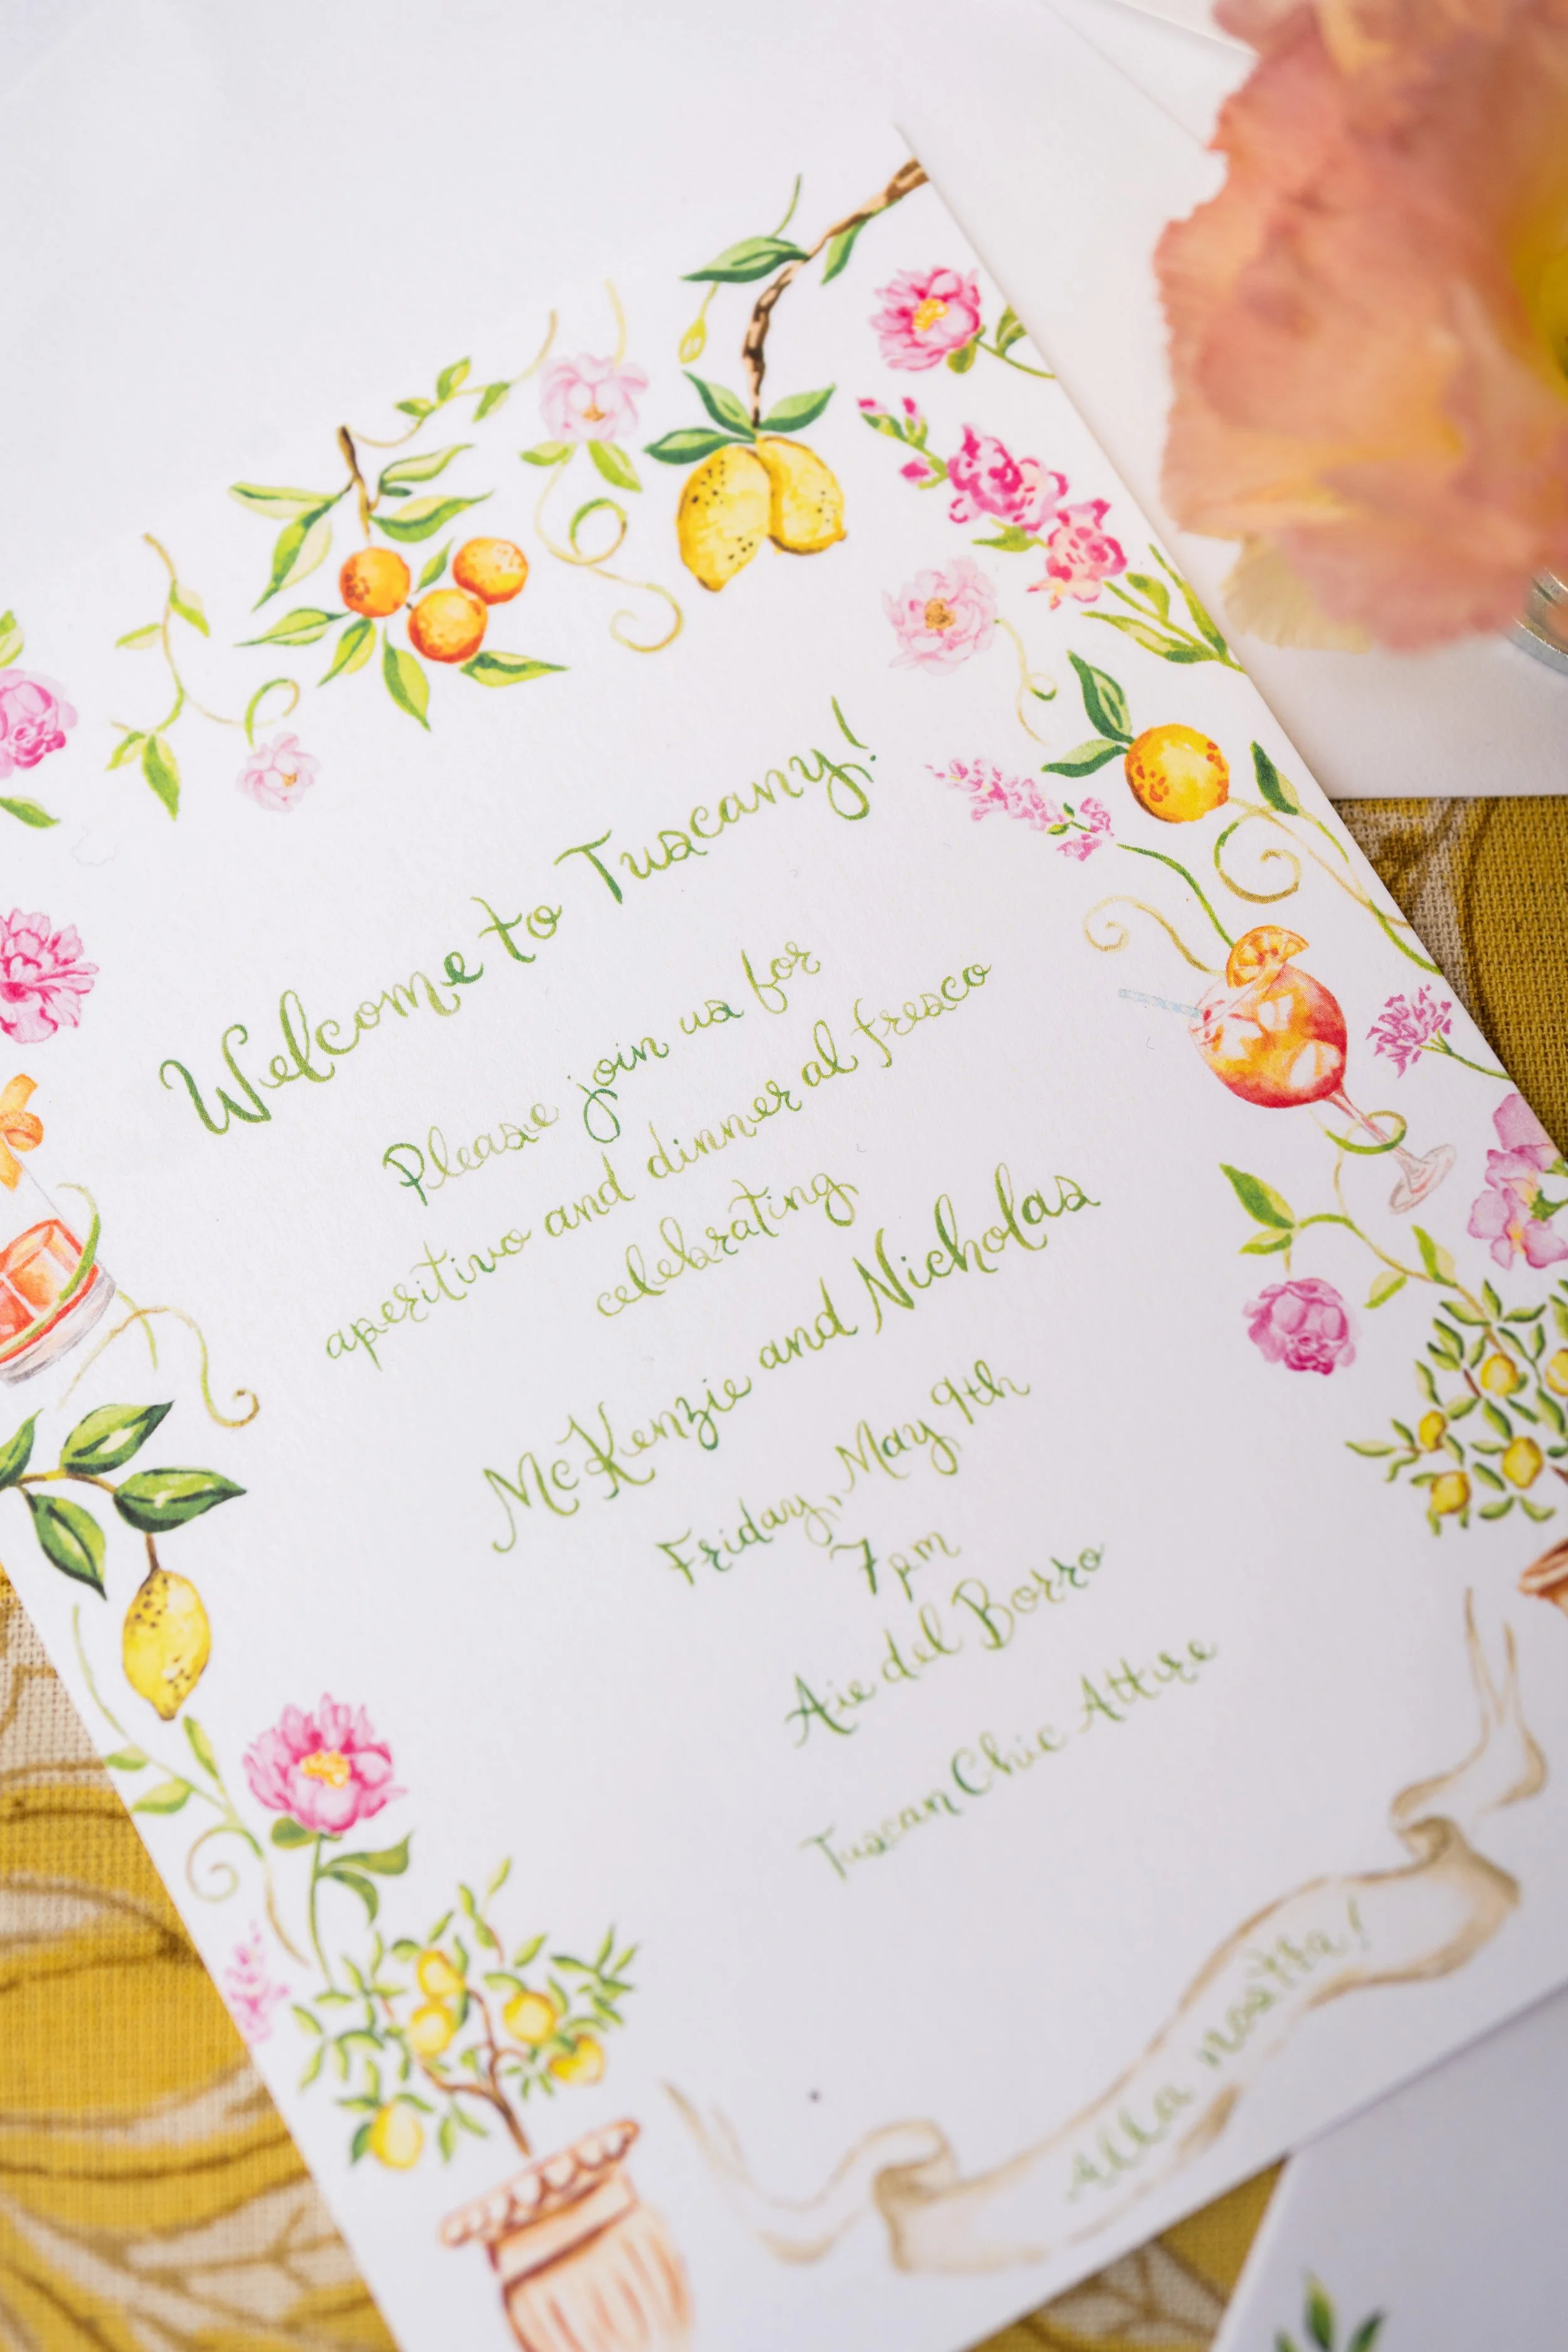 Welcome to Tuscany!
Please join us for
aperitivo and dinner al fresco
celebrating
McKenzie and Nicholas
Friday, May 9th
7pm
Aie del Borro
Tuscan Chic Attire
Alla nostra!